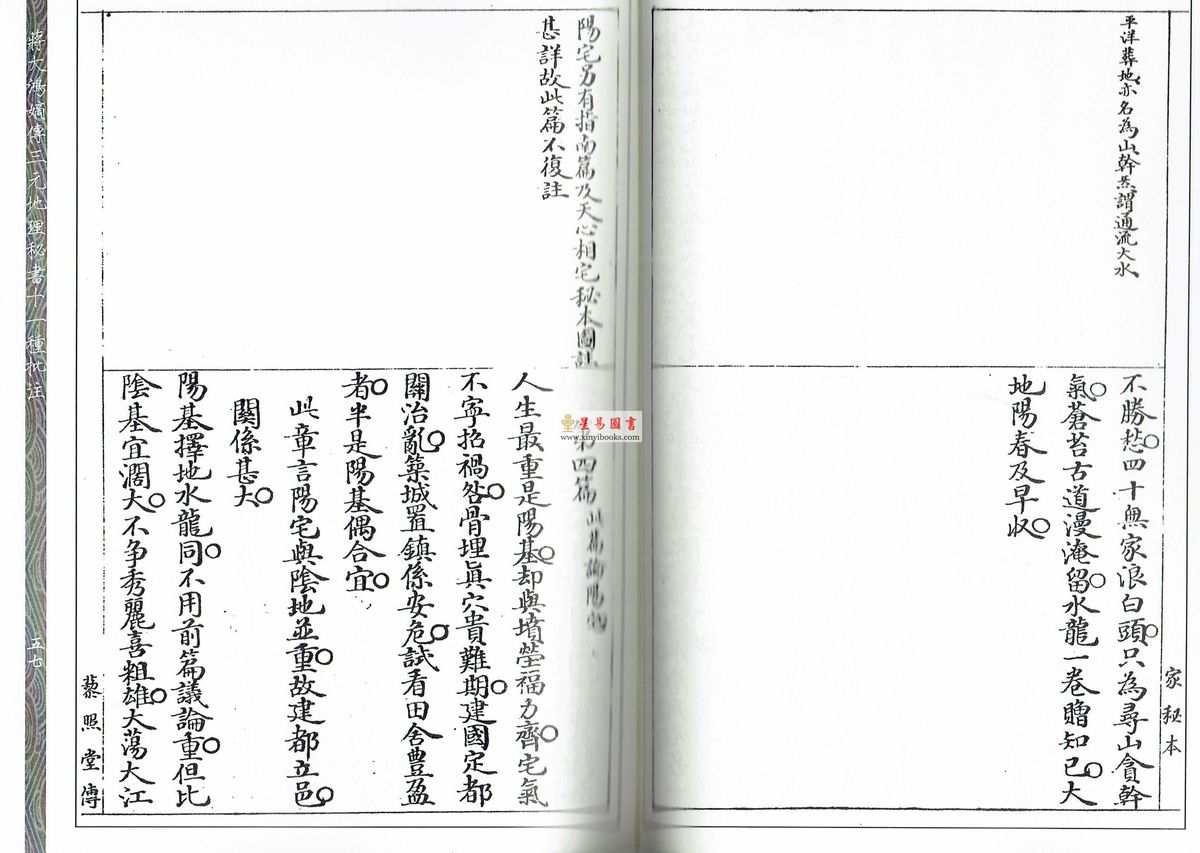 平洋葬地亦名為山幹炁謂通流大水
不勝愁四十無家浪白頭只為尋山貪幹
氣蒼苔古道漫淹留水龍一卷贈知己大
地陽春及早收
家秘本
陽宅另有指南篇及天心相宅秘本圖註
甚詳故此篇不復註
第四篇 此篇論陽宅
人生最重是陽基却與墳塋福力齊宅氣
不寧招禍咎骨埋眞穴貴難期建國定都
關治亂築城置鎮係安危試看田舍豊盈
者半是陽基偶合宜
此章言陽宅與陰地並重故建都立邑
關係甚大
陽基擇地水龍同不用前篇議論重但比
陰基宜濶大不爭秀麗喜粗雄大蕩大江
藜照堂傳
蔣大鴻嫡傳三元地理秘書十一種批注
五七
星易圖書
www.xinyibooks.com